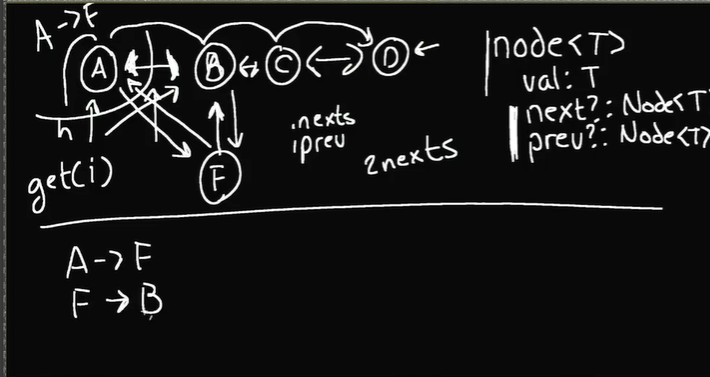 A->F
A B C D
h
get(i)
F
.nexts
.prev
2nexts
node<T>
val: T
next?: Node<T
prev?: Node<T>
A->F
F->B